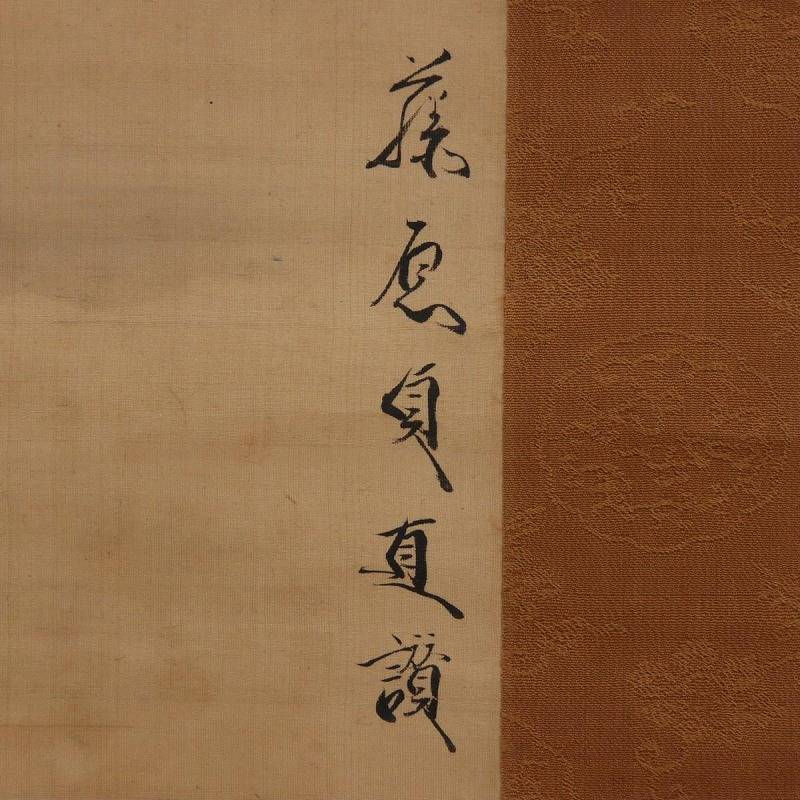 藤原貞直讃